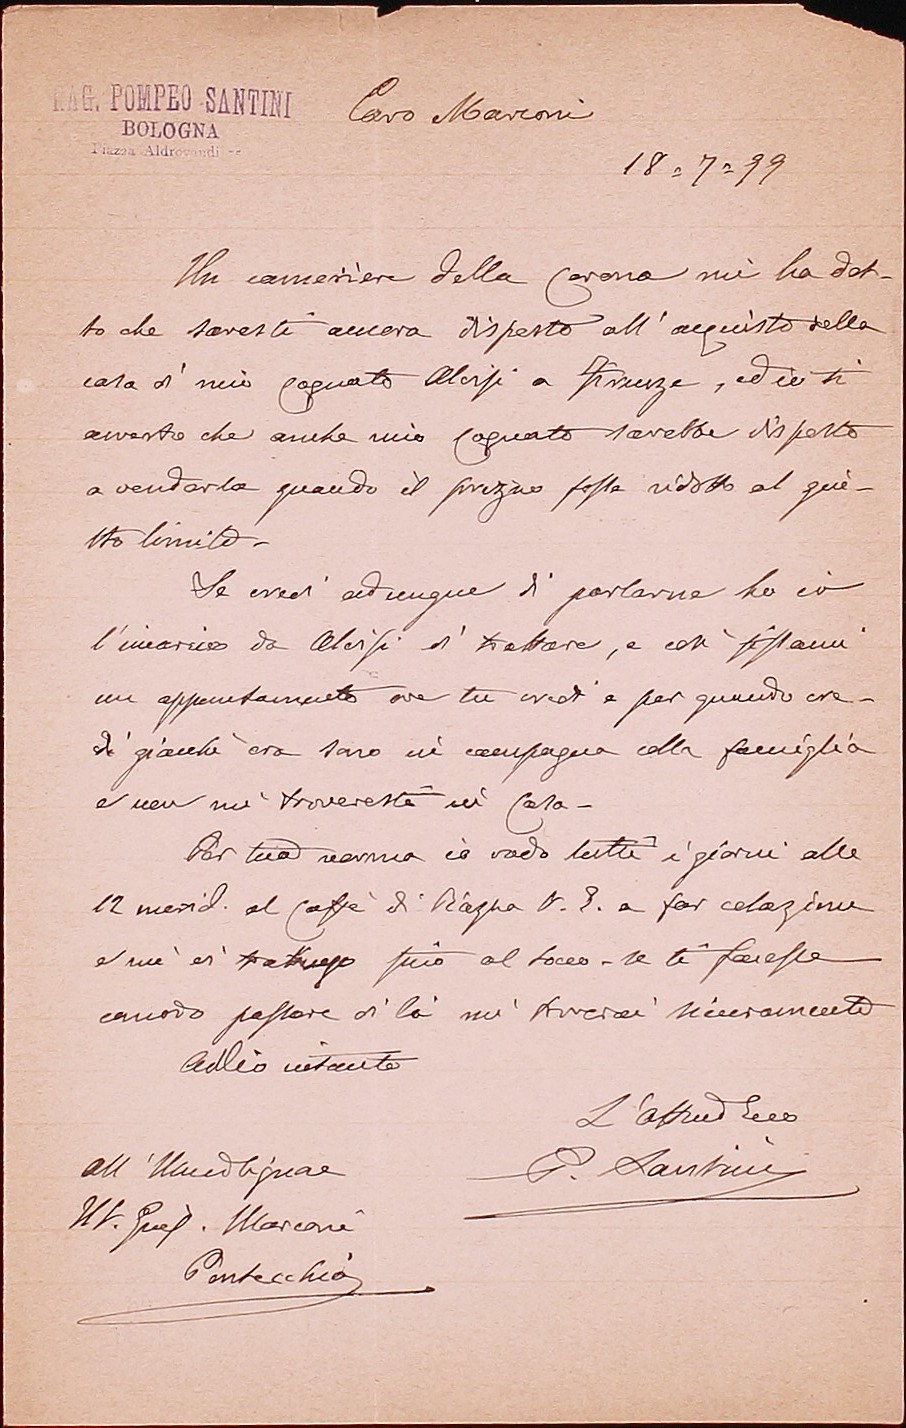 RAG. POMPEO SANTINI
BOLOGNA
Piazza Aldrovandi
Caro Marconi
18=7=99
Un cameriere della Corona mi ha det-
to che saresti ancora disposto all'acquisto della
casa di mio Cognato Aloisi a Firenze, ed io ti
avverto che anche mio Cognato sarebbe disposto
a venderla quando il prezzo fosse ridotto al giu-
sto limite -
Se credi adunque di parlarne ho io
l'incarico da Aloisi di trattare, e così fissami
un appuntamento ove tu credi e per quando cre-
di giacchè ora sono in campagna colla famiglia
e non mi troveresti in Casa -
Per tua norma io vado tutti i giorni alle
12 merid. al Caffè di Piazza V. E. a far colazione
e mi ci trattengo fino al tocco - se ti facesse
comodo passare di là mi troverai sicuramente
Addio intanto
L'aff
P. Santini
All'
Giusp. Marconi
Pontecchio